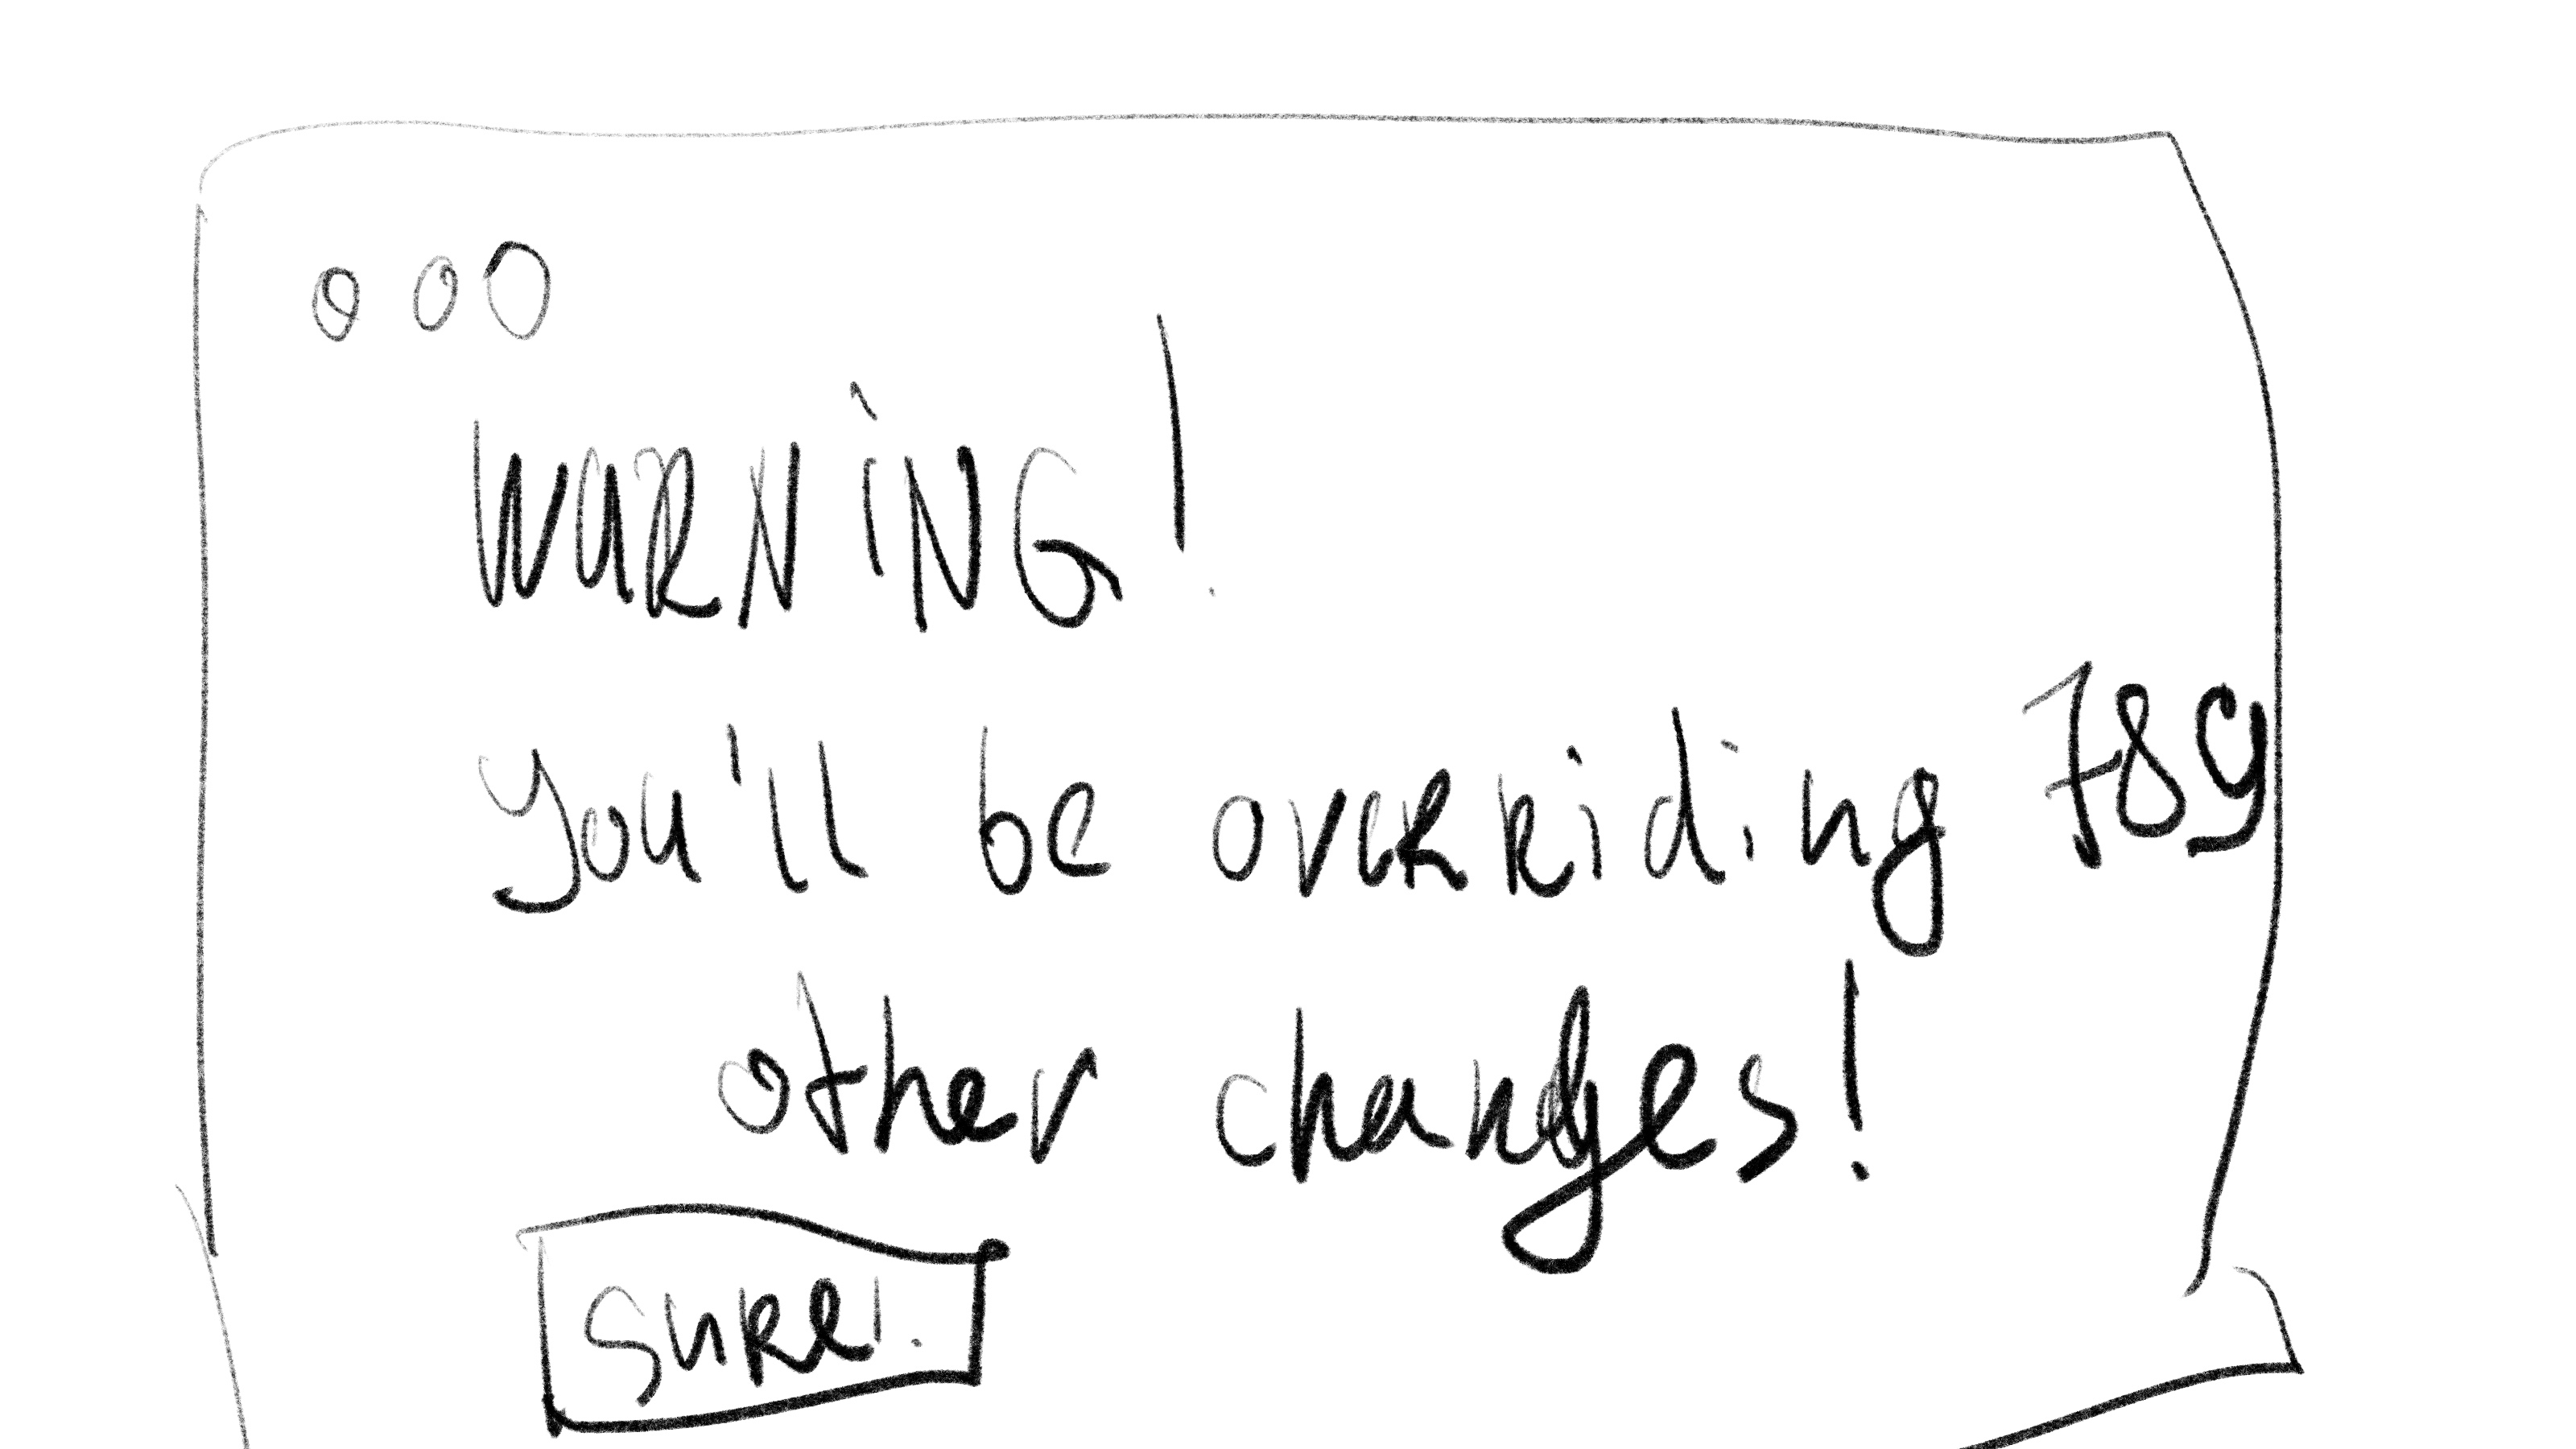 WARNiNG!
You'll be overriding 789
other changes!
Sure!